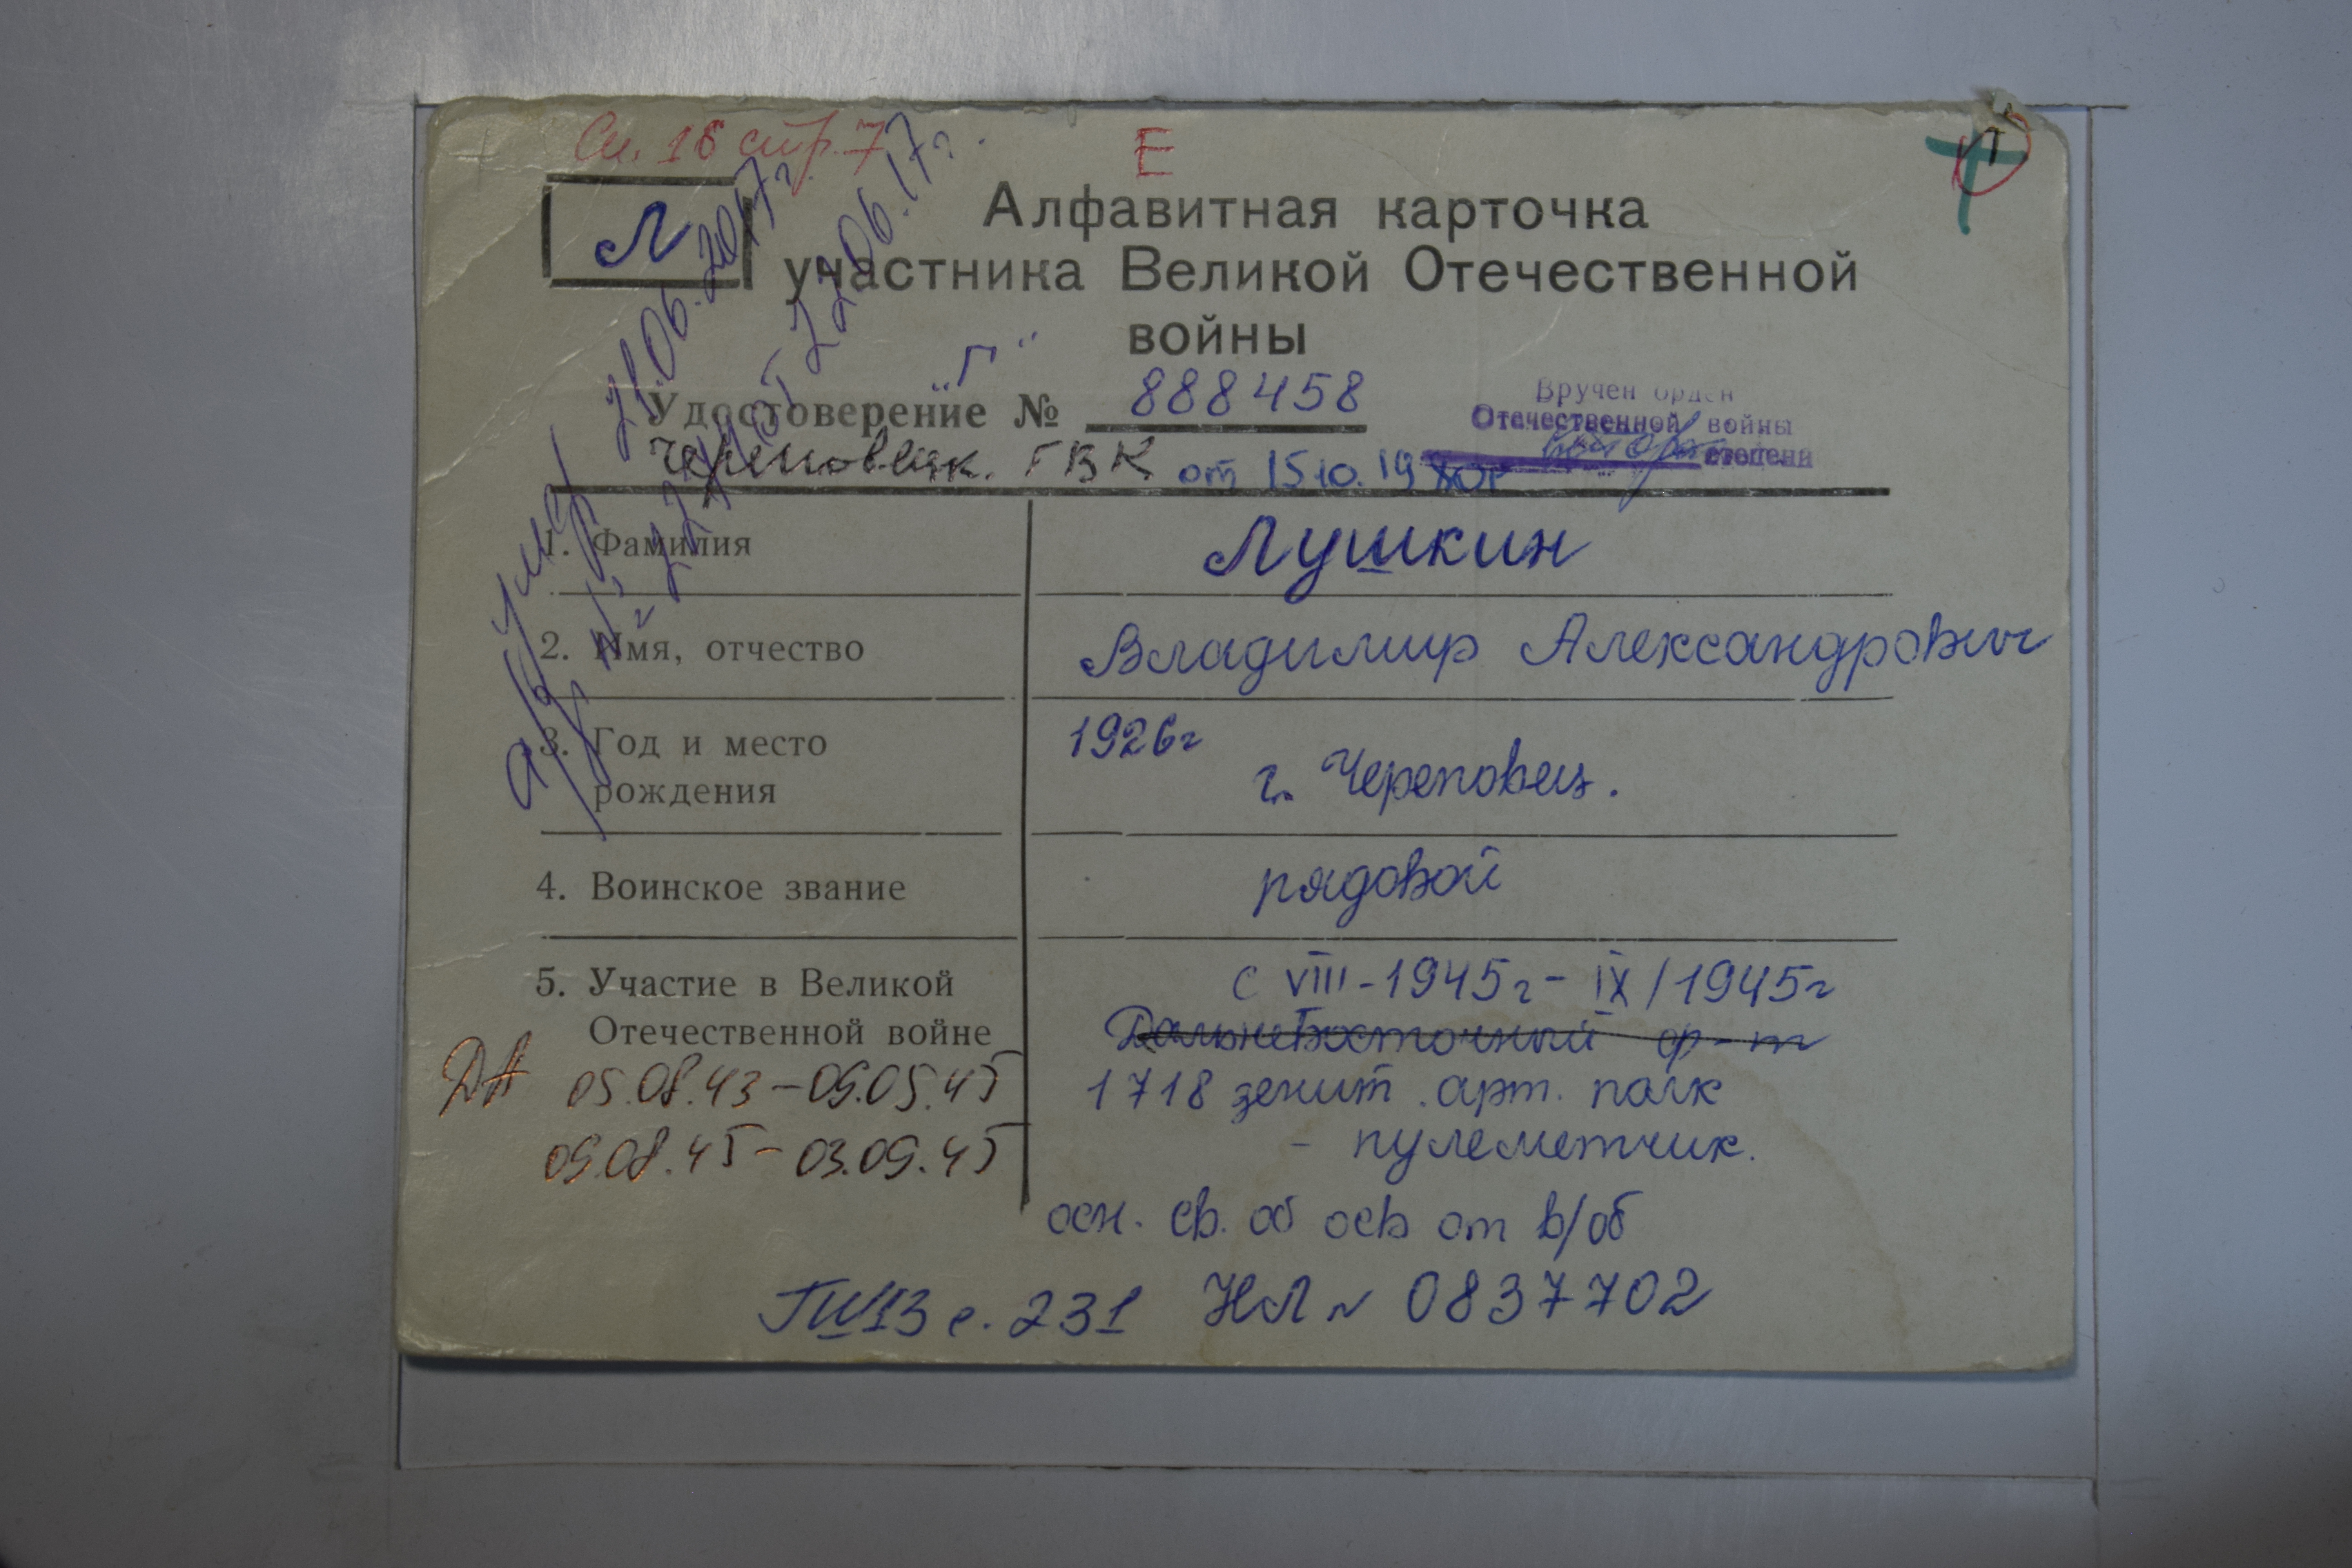 Сп. 16 стр. 7
Е
Л
Алфавитная карточка
участника Великой Отечественной
войны
„Г"
Удостоверение № 888458
Вручен орден
Отечественной войны
степени
Череповецк. ГВК от 15 10. 1980г
умер 21.06.2017г.
от 22.06.17г.
1. Фамилия Лушкин
2. Имя, отчество Владимир Александрович
3. Год и место
рождения
1926г
г. Череповец.
4. Воинское звание рядовой
5. Участие в Великой
Отечественной войне
с VIII-1945г - IX/1945г
Дальневосточный ф-т
1718 зенит. арт. полк
- пулеметчик.
ДА 05.08.43-09.05.45
09.08.45-03.09.45
осн. св. об осв от в/об
с. 231 НЛ № 0837702